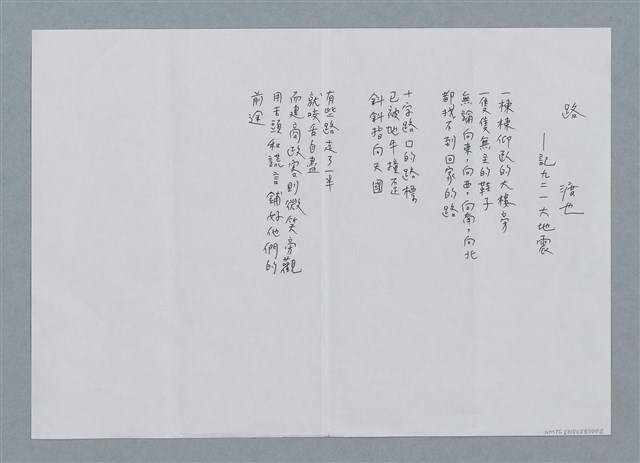 路
渡也
—記九二一大地震
一棟棟仰臥的大樓旁
一隻隻無主的鞋子
無論向東,向西,向南,向北
都找不到回家的路
十字路口的路標
已被地牛撞歪
斜斜指向天國
有些路走了一半
就咬舌自盡
而建商政客則微笑旁觀
用舌頭和謊言鋪好他們的
前途